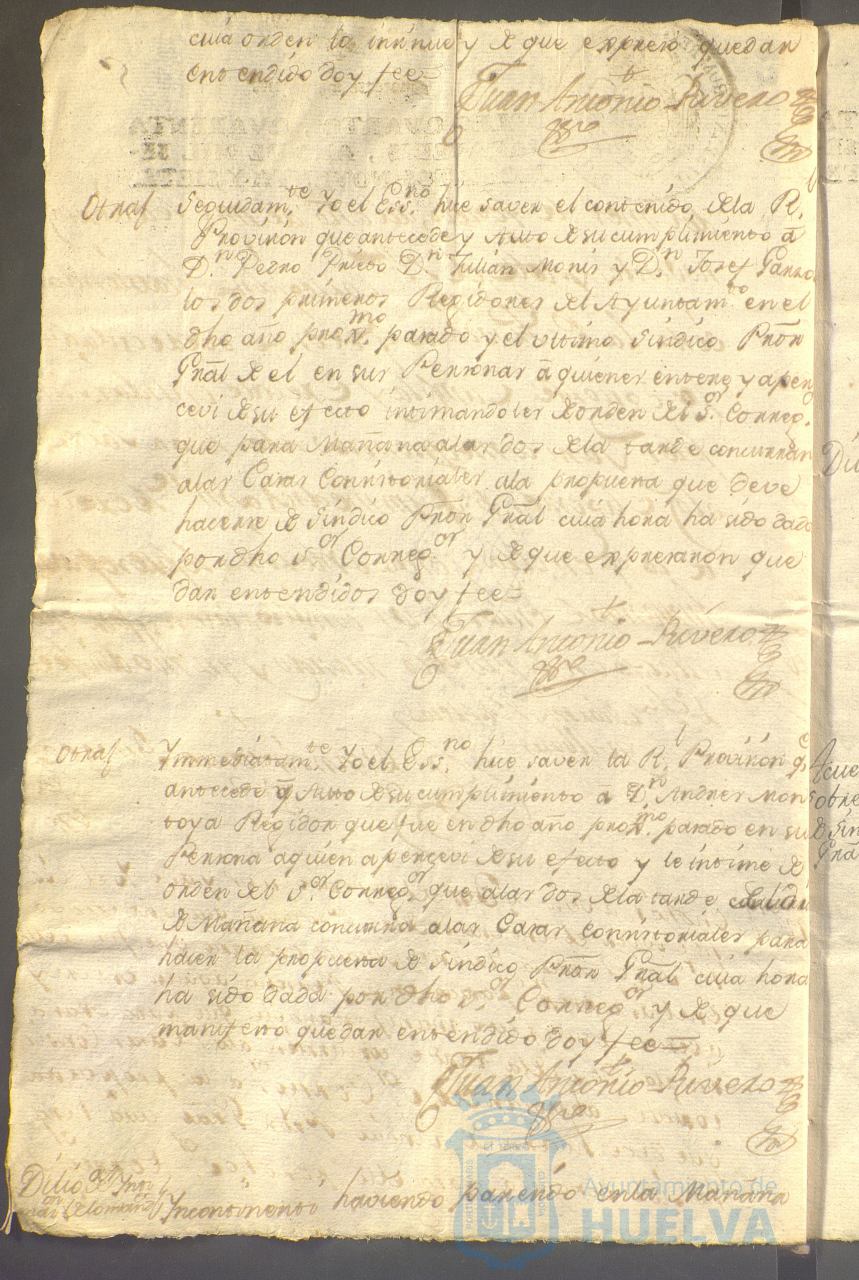 cuia orden lo intime y de que expreso quedar
entendido doy fee =
Juan Antonio Rivero
Otras Seguidam.te Yo el Ess.no hice saver el contenido de la R.l
Provision que antecede y Auto de su cumplimiento â
D.n Pedro Prieto D.n Julián Monis y D.n Josef Garzo
los dos primeros Regidores del Ayuntam.to en el
dho año prox.mo pasado y el ultimo Sindico Pror
Gral de el en sus Personas â quienes enteré y aper
cevi de su efecto intimandoles de orden del S.or Correg.or
que para Mañana a las dos de la tarde concurran
a las Casas Consistoriales a la propuesta que deve
hacerse de Sindico Pror Gral cuia hora ha sido dada
por dho S.or Correg.or y de que expresaron que
dar entendidos doy fee =
Juan Antonio Rivero
Otras Immediatam.te Yo el Ess.no hice saver la R.l Provision q.e
antecede y Auto de su cumplimiento a D.n Andres Mon
toya Regidor que fue en dho año prox.mo pasado en su
Persona a quien apercevi de su efecto y le intime de
orden del S.or Correg.or que a las dos de la tarde del dia
de Mañana concurra a las Casas Consistoriales para
hacer la propuesta de Sindico Pror Gral cuia hora
ha sido dada por dho S.or Correg.or y de que
manifesto quedar entendido doy fee =
Juan Antonio Rivero
Incontinenti haviendo parecido en la Mañana
Ayuntamiento de
HUELVA